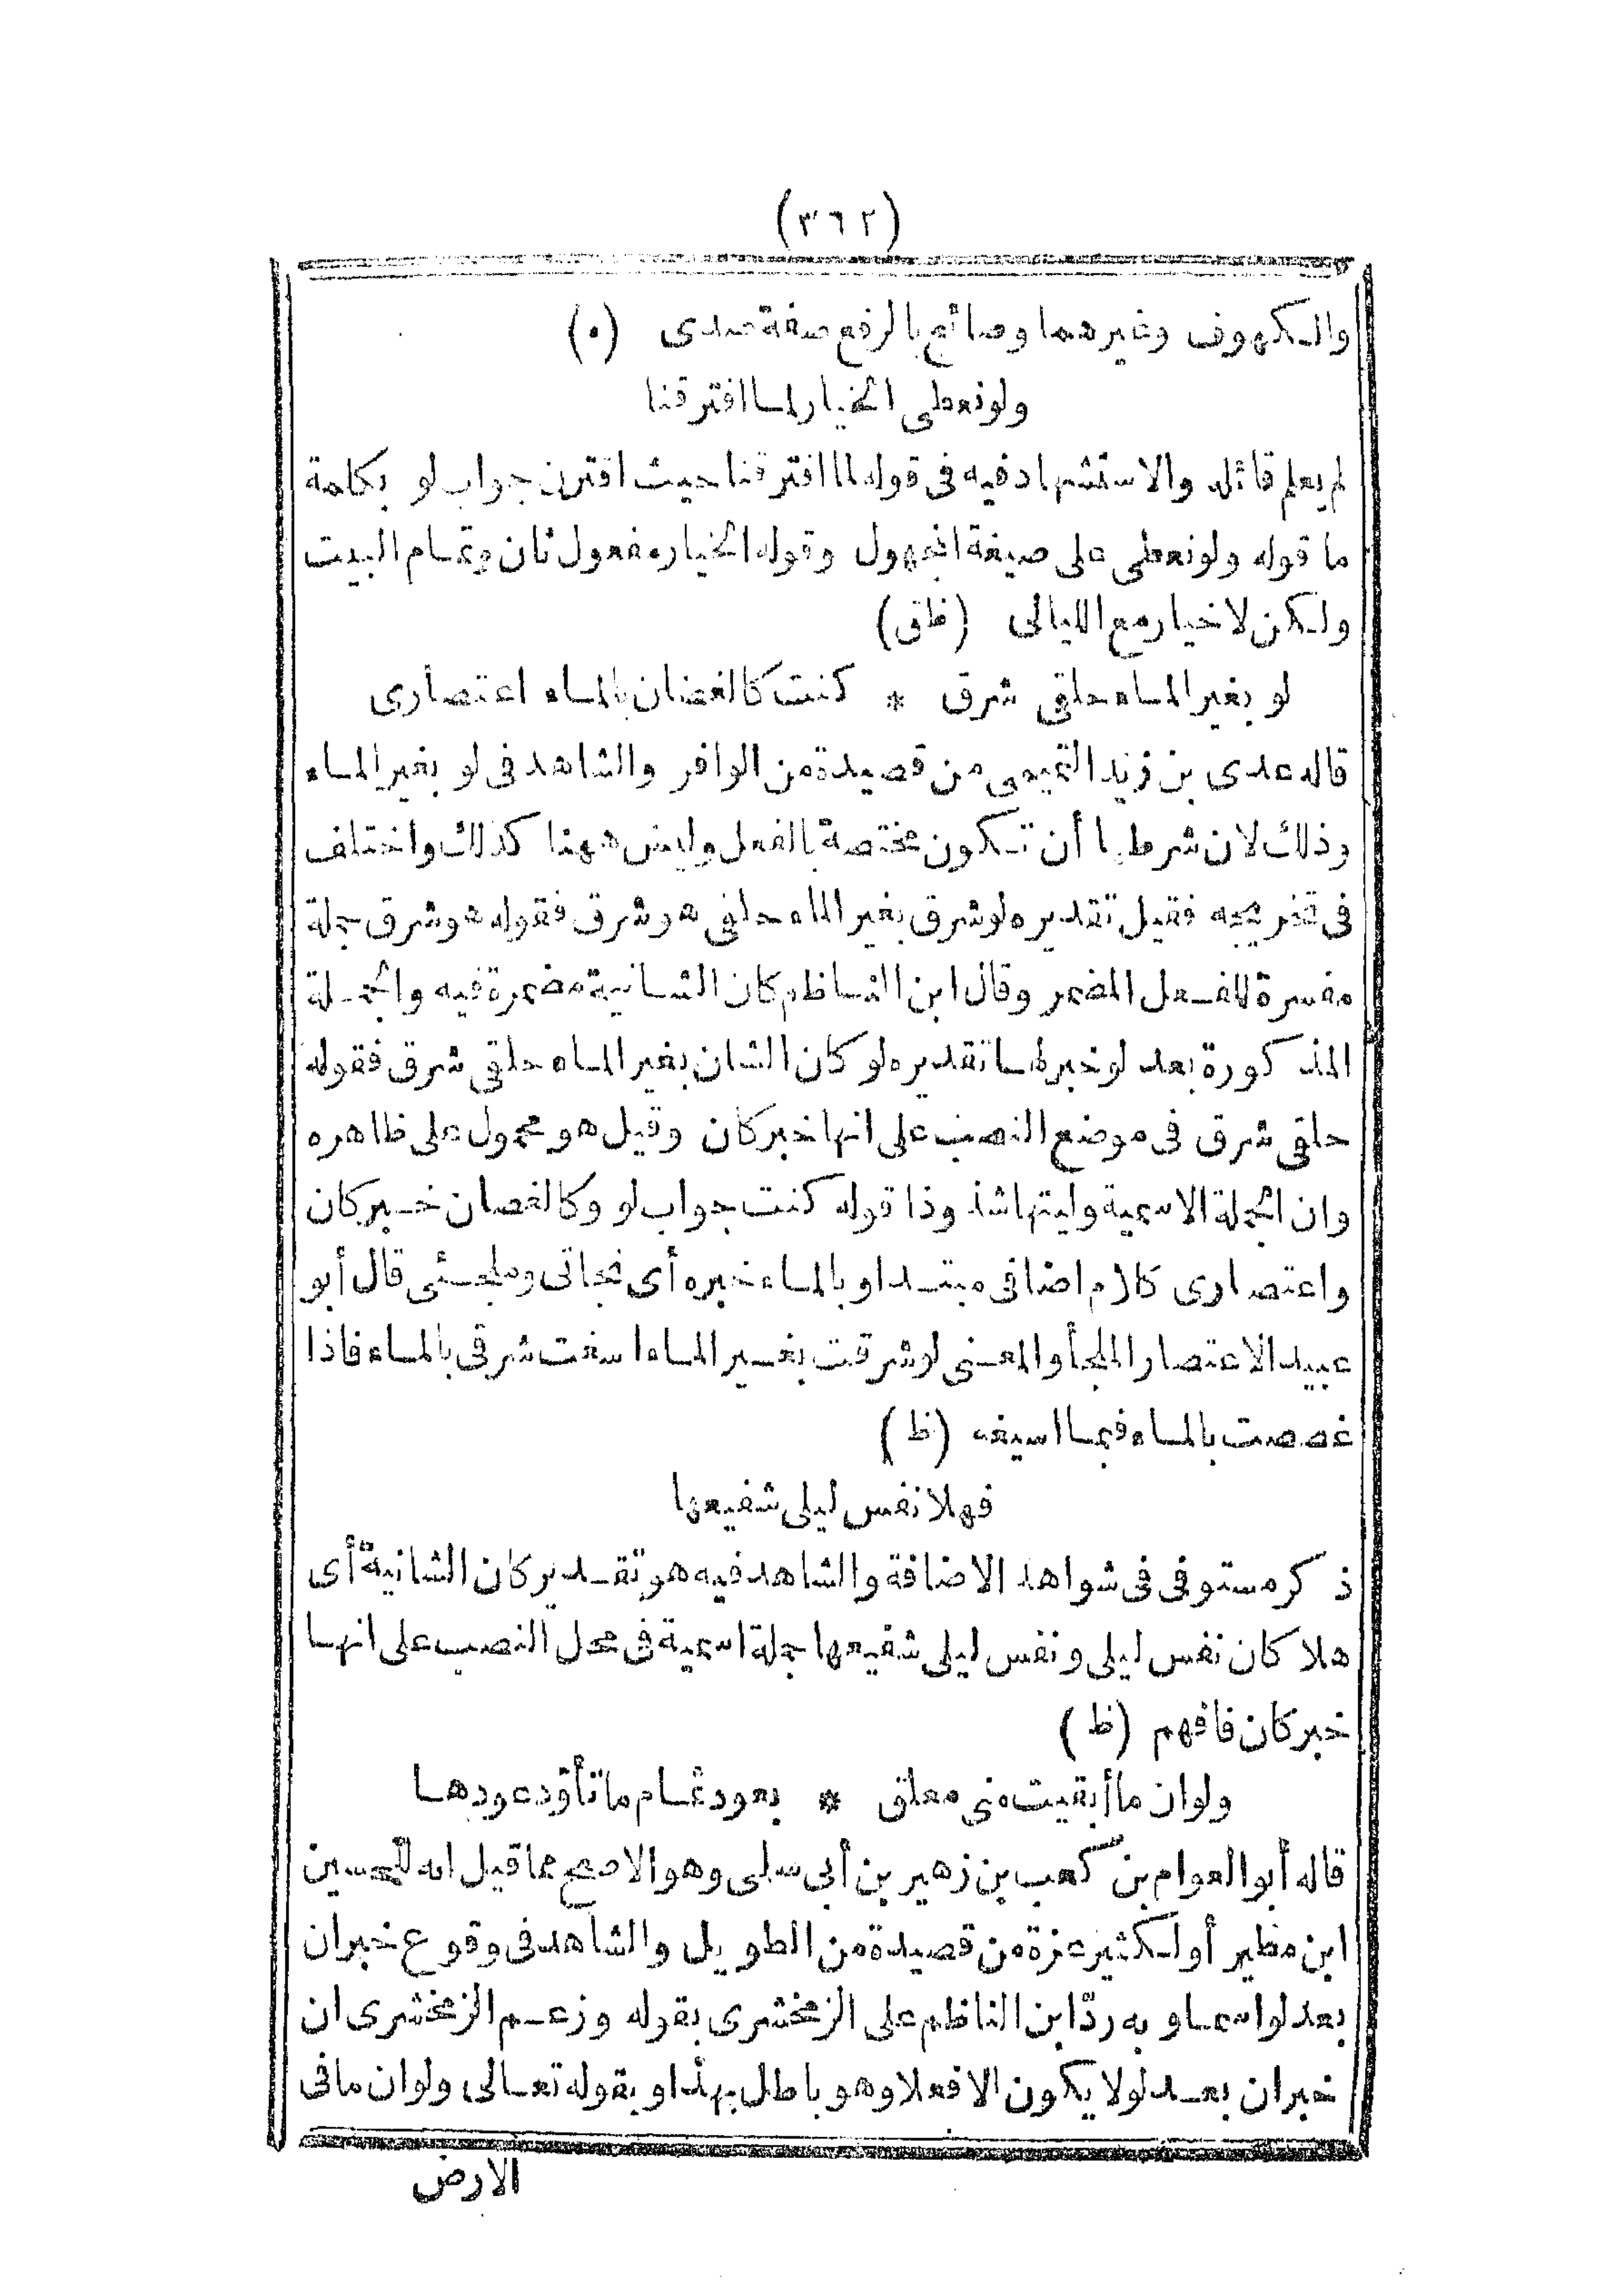 (٣٦٢)
والكهوف وغيرهما وصائح بالرفع صفة صدى (ه)
ولو نعطى الخيار لما افترقنا
لم يعلم قائله والاستشهاد فيه فى قوله لما افترقنا حيث اقترن جواب لو بكلمة
ما قوله ولو نعطى على صيغة المجهول وقوله الخيار مفعول ثان وتمام البيت
ولكن لا خيار مع الليالى (ظق)
لو بغير الماء حلقى شرق * كنت كالغصان بالماء اعتصارى
قاله عدى بن زيد التميمى من قصيدة من الوافر والشاهد فى لو بغير الماء
وذلك لان شرطها أن تكون مختصة بالفعل وليس ههنا كذلك واختلف
فى تخريجه فقيل تقديره لو شرق بغير الماء حلقى هو شرق فقوله هو شرق جملة
مفسرة للفعل المضمر وقال ابن الناظم كان الشانية مضمرة فيه والجملة
المذكورة بعد لو خبر لها تقديره لو كان الشان بغير الماء حلقى شرق فقوله
حلقى شرق فى موضع النصب على انها خبر كان وقيل هو محمول على ظاهره
وان الجملة الاسمية وليتها شذوذا قوله كنت جواب لو وكالغصان خبر كان
واعتصارى كلام اضافى مبتدا وبالماء خبره أى نجاتى وملجئى قال أبو
عبيد الاعتصار الملجأ والمعنى لو شرقت بغير الماء اسغت شرقى بالماء فاذا
غصصت بالماء فبما اسيغه (ظ)
فهلا نفس ليلى شفيعها
ذكر مستوفى فى شواهد الاضافة والشاهد فيه هو تقدير كان الشانية أى
هلا كان نفس ليلى ونفس ليلى شفيعها جملة اسمية فى محل النصب على انها
خبر كان فافهم (ظ)
ولو ان ما أبقيت منى معلق * بعود ثمام ما تأوّد عودها
قاله أبو العوام بن كعب بن زهير بن أبى سلمى وهو الاصح مما قيل انه للحسين
ابن مطير أو لكثير عزة من قصيدة من الطويل والشاهد فى وقوع خبر ان
بعد لو اسما وبه ردّ ابن الناظم على الزمخشرى بقوله وزعم الزمخشرى ان
خبر ان بعد لو لا يكون الا فعلا وهو باطل بهذا وبقوله تعالى ولو ان ما فى
الارض